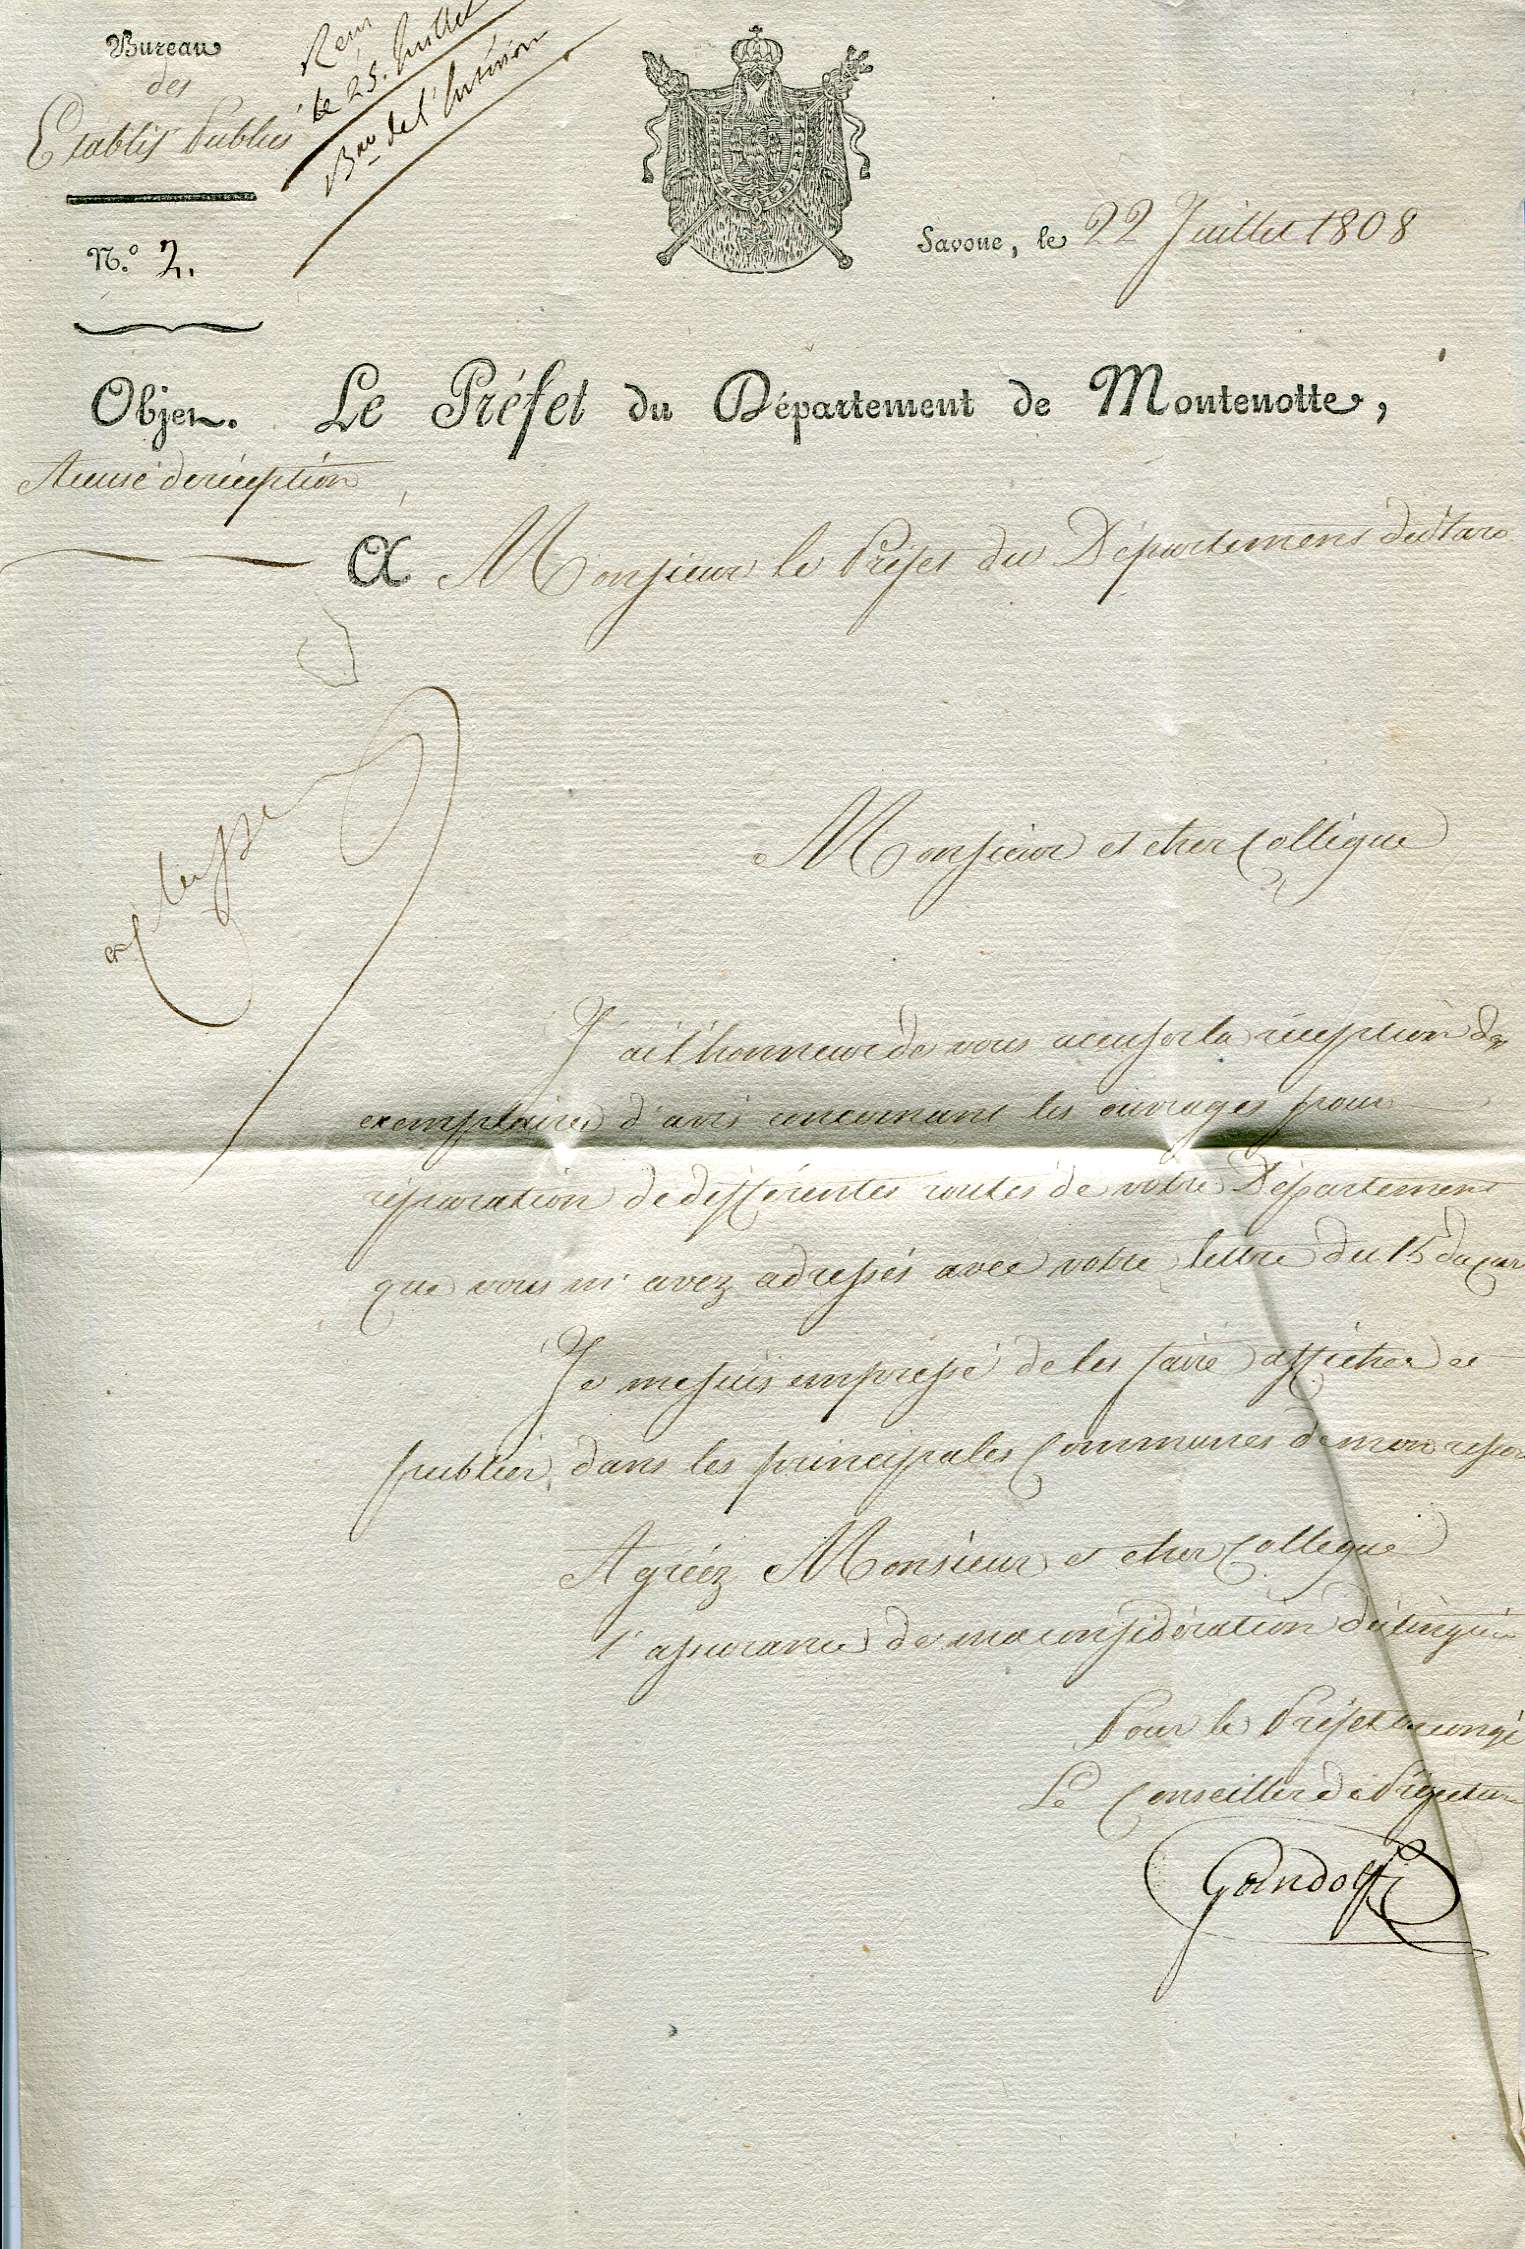 Bureau
des
Etablis Publics
Reçu
le 25. Juillet
Bau de l'Intérieur
N.o 2.
Savone, le 22 Juillet 1808
Objet. Le Préfet du Département de Montenotte,
Accusé de réception
A Monsieur le Préfet du Département du Taro
Monsieur et cher Collègue
J'ai l'honneur de vous accuser la réception des
exemplaires d'avis concernant les ouvrages pour
réparation de différentes routes de votre Département
que vous m'avez adressés avec votre lettre du 15 du
Je me suis empressé de les faire afficher et
publier, dans les principales Communes de mon
Agréez Monsieur et cher Collègue
l'assurance de ma considération distinguée
Pour le Préfet en congé
Le Conseiller de Préfecture
Gandolfi